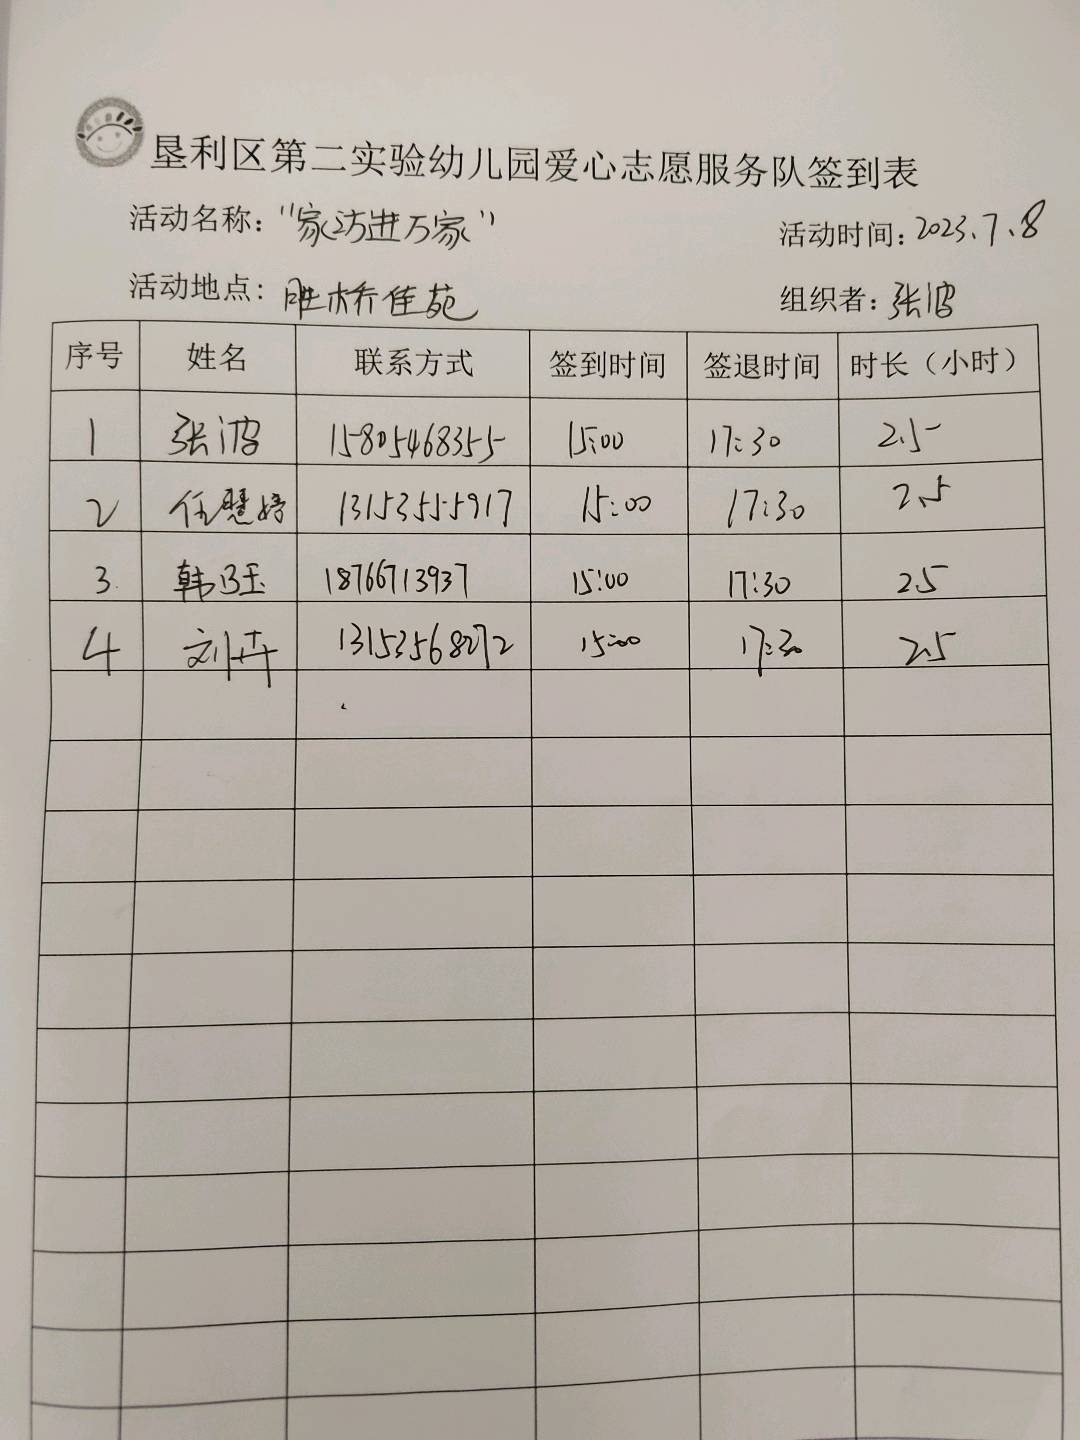 垦利区第二实验幼儿园爱心志愿服务队签到表
活动名称："家访进万家" 活动时间：2023.7.8
活动地点：胜桥佳苑 组织者：张波
序号 姓名 联系方式 签到时间 签退时间 时长（小时）
1 张波 15805468355 15:00 17:30 2.5
2 任慧婷 13153555917 15:00 17:30 2.5
3. 韩 18766713937 15:00 17:30 2.5
4 刘卉 13153568272 15:00 17:30 2.5